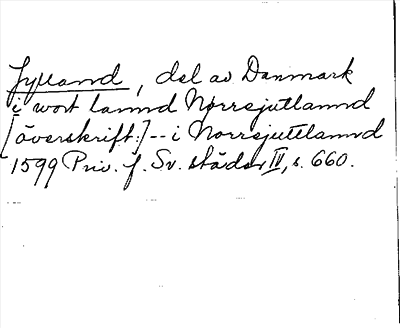 Jylland, del av Danmark
i wort lannd Nørrsjutlannd
[överskrift:] -- i Norrsjuttlannd
1599 Priv. f. Sv. städer IV, s. 660.